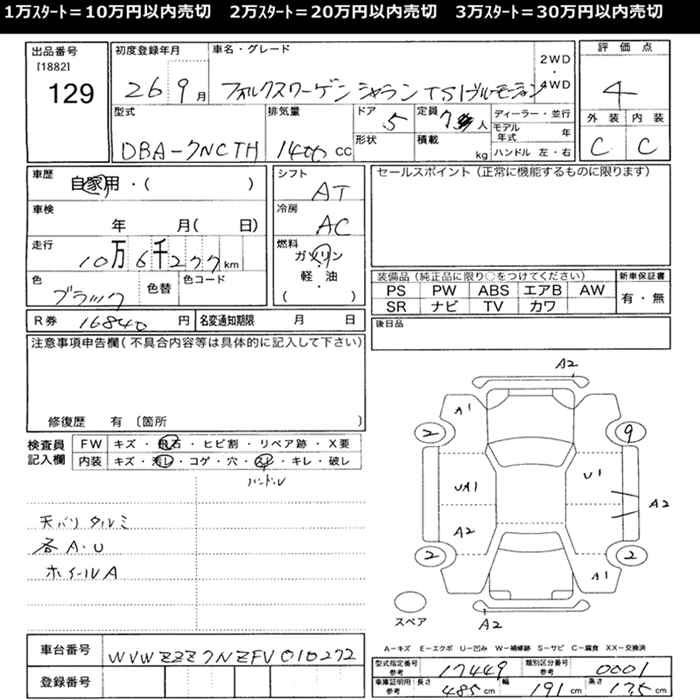 1万ｽﾀｰﾄ＝10万円以内売切　2万ｽﾀｰﾄ＝20万円以内売切　3万ｽﾀｰﾄ＝30万円以内売切
出品番号
[1882]
129
初度登録年月
26 9月
車名・グレード
フォルクスワーゲン シャラン TSIブルーモーション
2WD・4WD
評価点
4
外装 内装
C C
型式
DBA-7NCTH
排気量
1400 cc
ドア
5
形状
定員
7人
積載 kg
ディーラー・並行
モデル年式 年
ハンドル 左・右
車歴
自家用・( )
車検
年 月( 日)
走行
10万6千277km
色
ブラック
色替
色コード
シフト
AT
冷房
AC
燃料
ガソリン
・
軽・油
( )
セールスポイント（正常に機能するものに限ります）
装備品（純正品に限り○をつけてください）
PS PW ABS エアB AW
SR ナビ TV カワ
新車保証書
有・無
R券 16840円
名変通知期限 月 日
後日品
注意事項申告欄(不具合内容等は具体的に記入して下さい)
修復歴 有 〔箇所 〕
検査員
記入欄
FW キズ・飛石・ヒビ割・リペア跡・X要
内装 キズ・汚レ・コゲ・穴・スレ・キレ・破レ
ハンドル
天バリ タルミ
各A・U
ホイールA
A2
A1
2 9
UA1 U1
A2
A2
2 2
A1
スペア
A2
A―キズ E―エクボ U―凹み W―補修跡 S―サビ C―腐食 XX―交換済
車台番号 WVWZZZ7NZFV010272
登録番号
型式指定番号
参考
17449
類別区分番号
参考
0001
車庫証明用
参考
長さ 485cm 幅 191cm 高さ 175cm